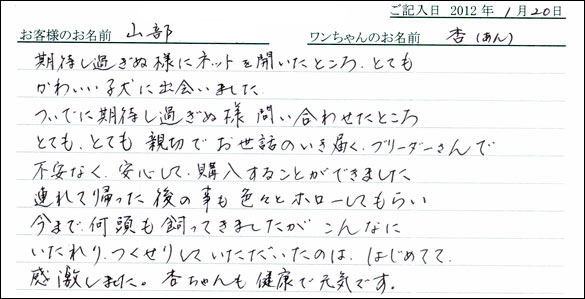 ご記入日 2012年 1月20日
お客様のお名前 山部 ワンちゃんのお名前 杏(あん)
期待し過ぎぬ様にネットを開いたところ、とても
かわいい子犬に出会いました。
ついでに期待し過ぎぬ様 問い合わせたところ
とても、とても 親切でお世話のいき届く、ブリーダーさんで
不安なく、安心して、購入することができました
連れて帰った後の事も色々とホローしてもらい
今まで、何頭も飼ってきましたが こんなに
いたれり、つくせりしていただいたのは、はじめてで、
感激しました。杏ちゃんも健康で元気です。